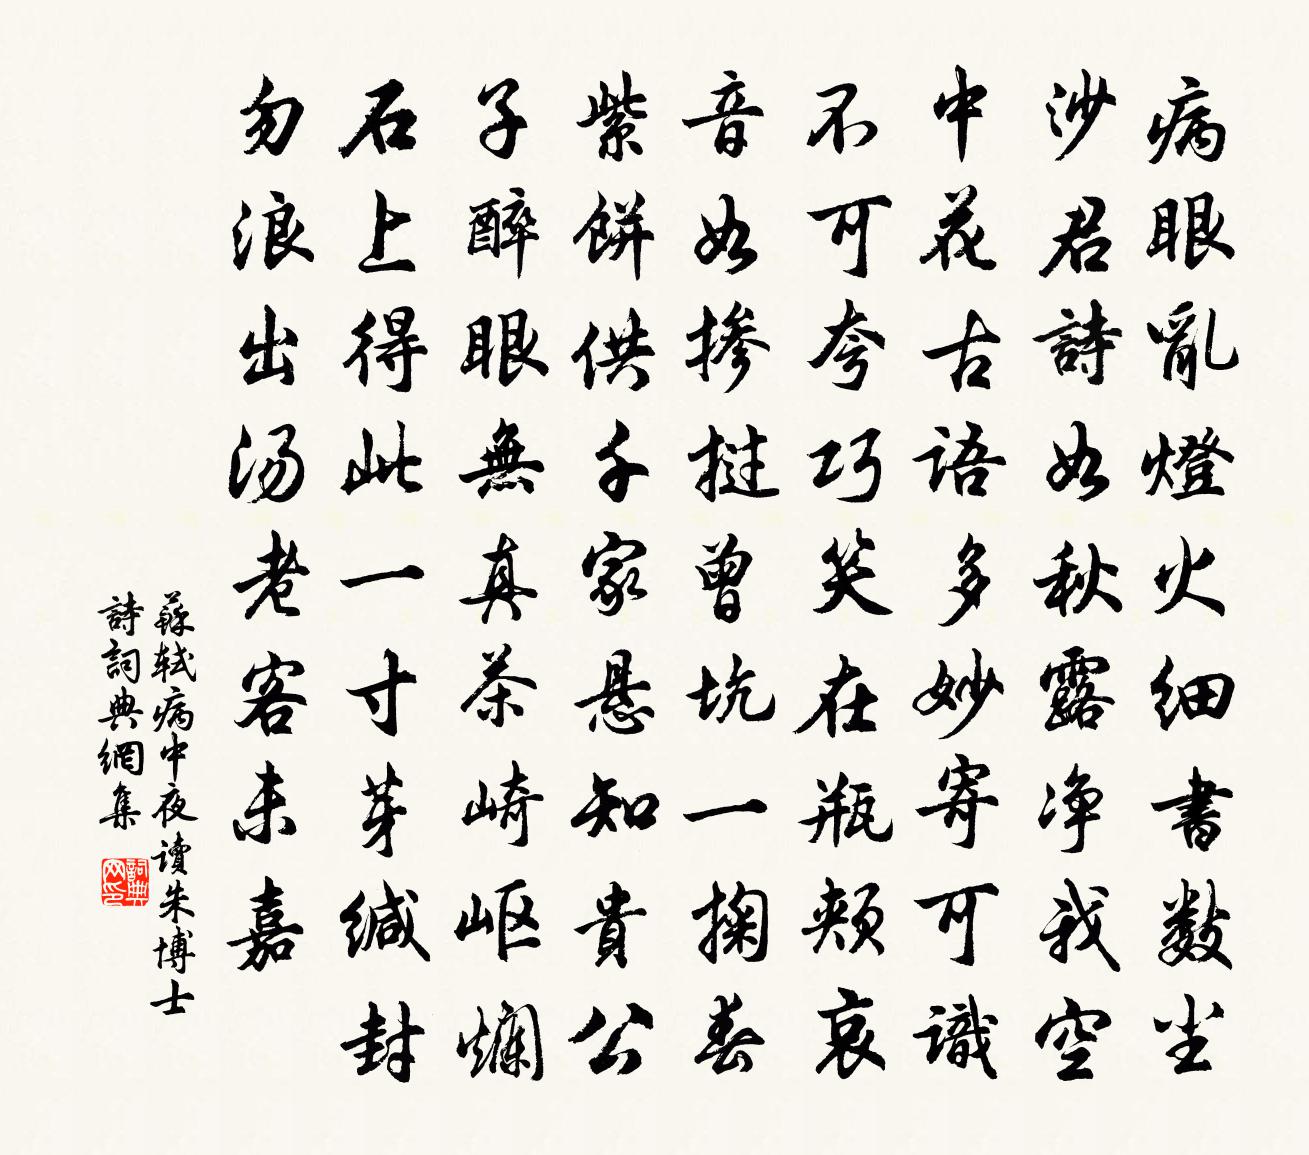 病眼亂燈火細書數尘
沙君詩如秋露净我空
中花古語多妙寄可識
不可夸巧笑在瓶頰哀
音如摻撾曾坑一掬春
紫餅供千家悬知貴公
子醉眼無真茶崎岖爛
石上得此一寸芽緘封
勿浪出汤老客未嘉
蘇軾病中夜讀朱博士
詩詞典網集
詞典网印